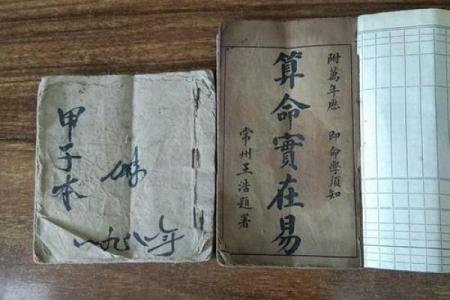 甲子本
一九八一年
附萬年歷 即命學須知
算命實在易
常州王浩題署